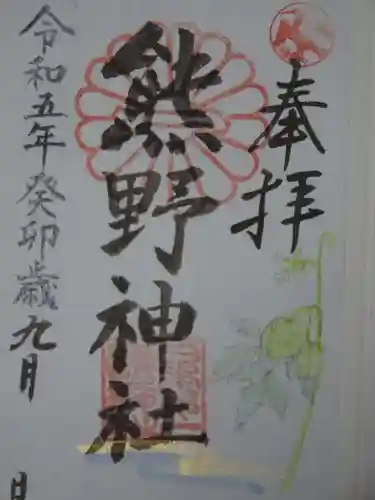 奉拝
熊野神社
令和五年癸卯歳九月
日